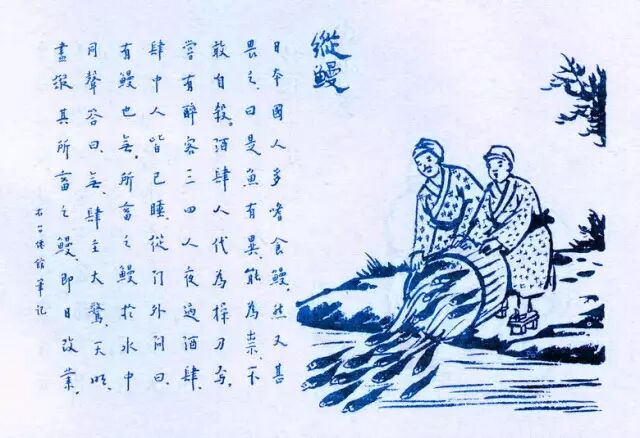 縱鰻
日本國人多嗜食鰻、然又甚
畏之、曰是魚有異能為祟、不
敢自殺。酒肆人代為操刀焉、
嘗有醉客三四人夜過酒肆、
肆中人皆已睡、從门外问曰、
有鰻也無、所畜之鰻於水中
同聲答曰、無、肆主大驚、天明、
盡縱其所畜之鰻、即日改業、
右台僊館筆记